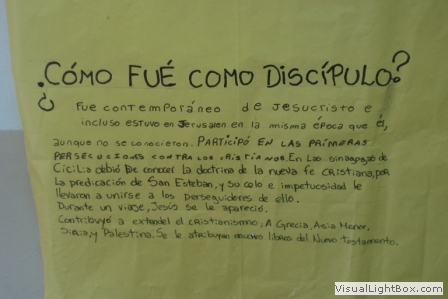 ¿CÓMO FUÉ COMO DISCÍPULO?
Fue contemporáneo de Jesucristo e
incluso estuvo en Jerusalen en la misma época que él,
aunque no se conocieron. PARTICIPÓ EN LAS PRIMERAS
PERSECUCIONES CONTRA LOS CRISTIANOS. En Las sinagogas de
Cicilia debió de conocer la doctrina de la nueva fe cristiana, por
La predicación de San Esteban, y su celo e impetuosidad le
llevaron a unirse a los perseguidores de ello.
Durante un viaje, Jesús se le apareció.
Contribuyó a extender el cristianismo, A Grecia, Asia Menor,
Siria, y Palestina. Se le atribuyen muchos libros del Nuevo testamento.
VisualLightBox.com